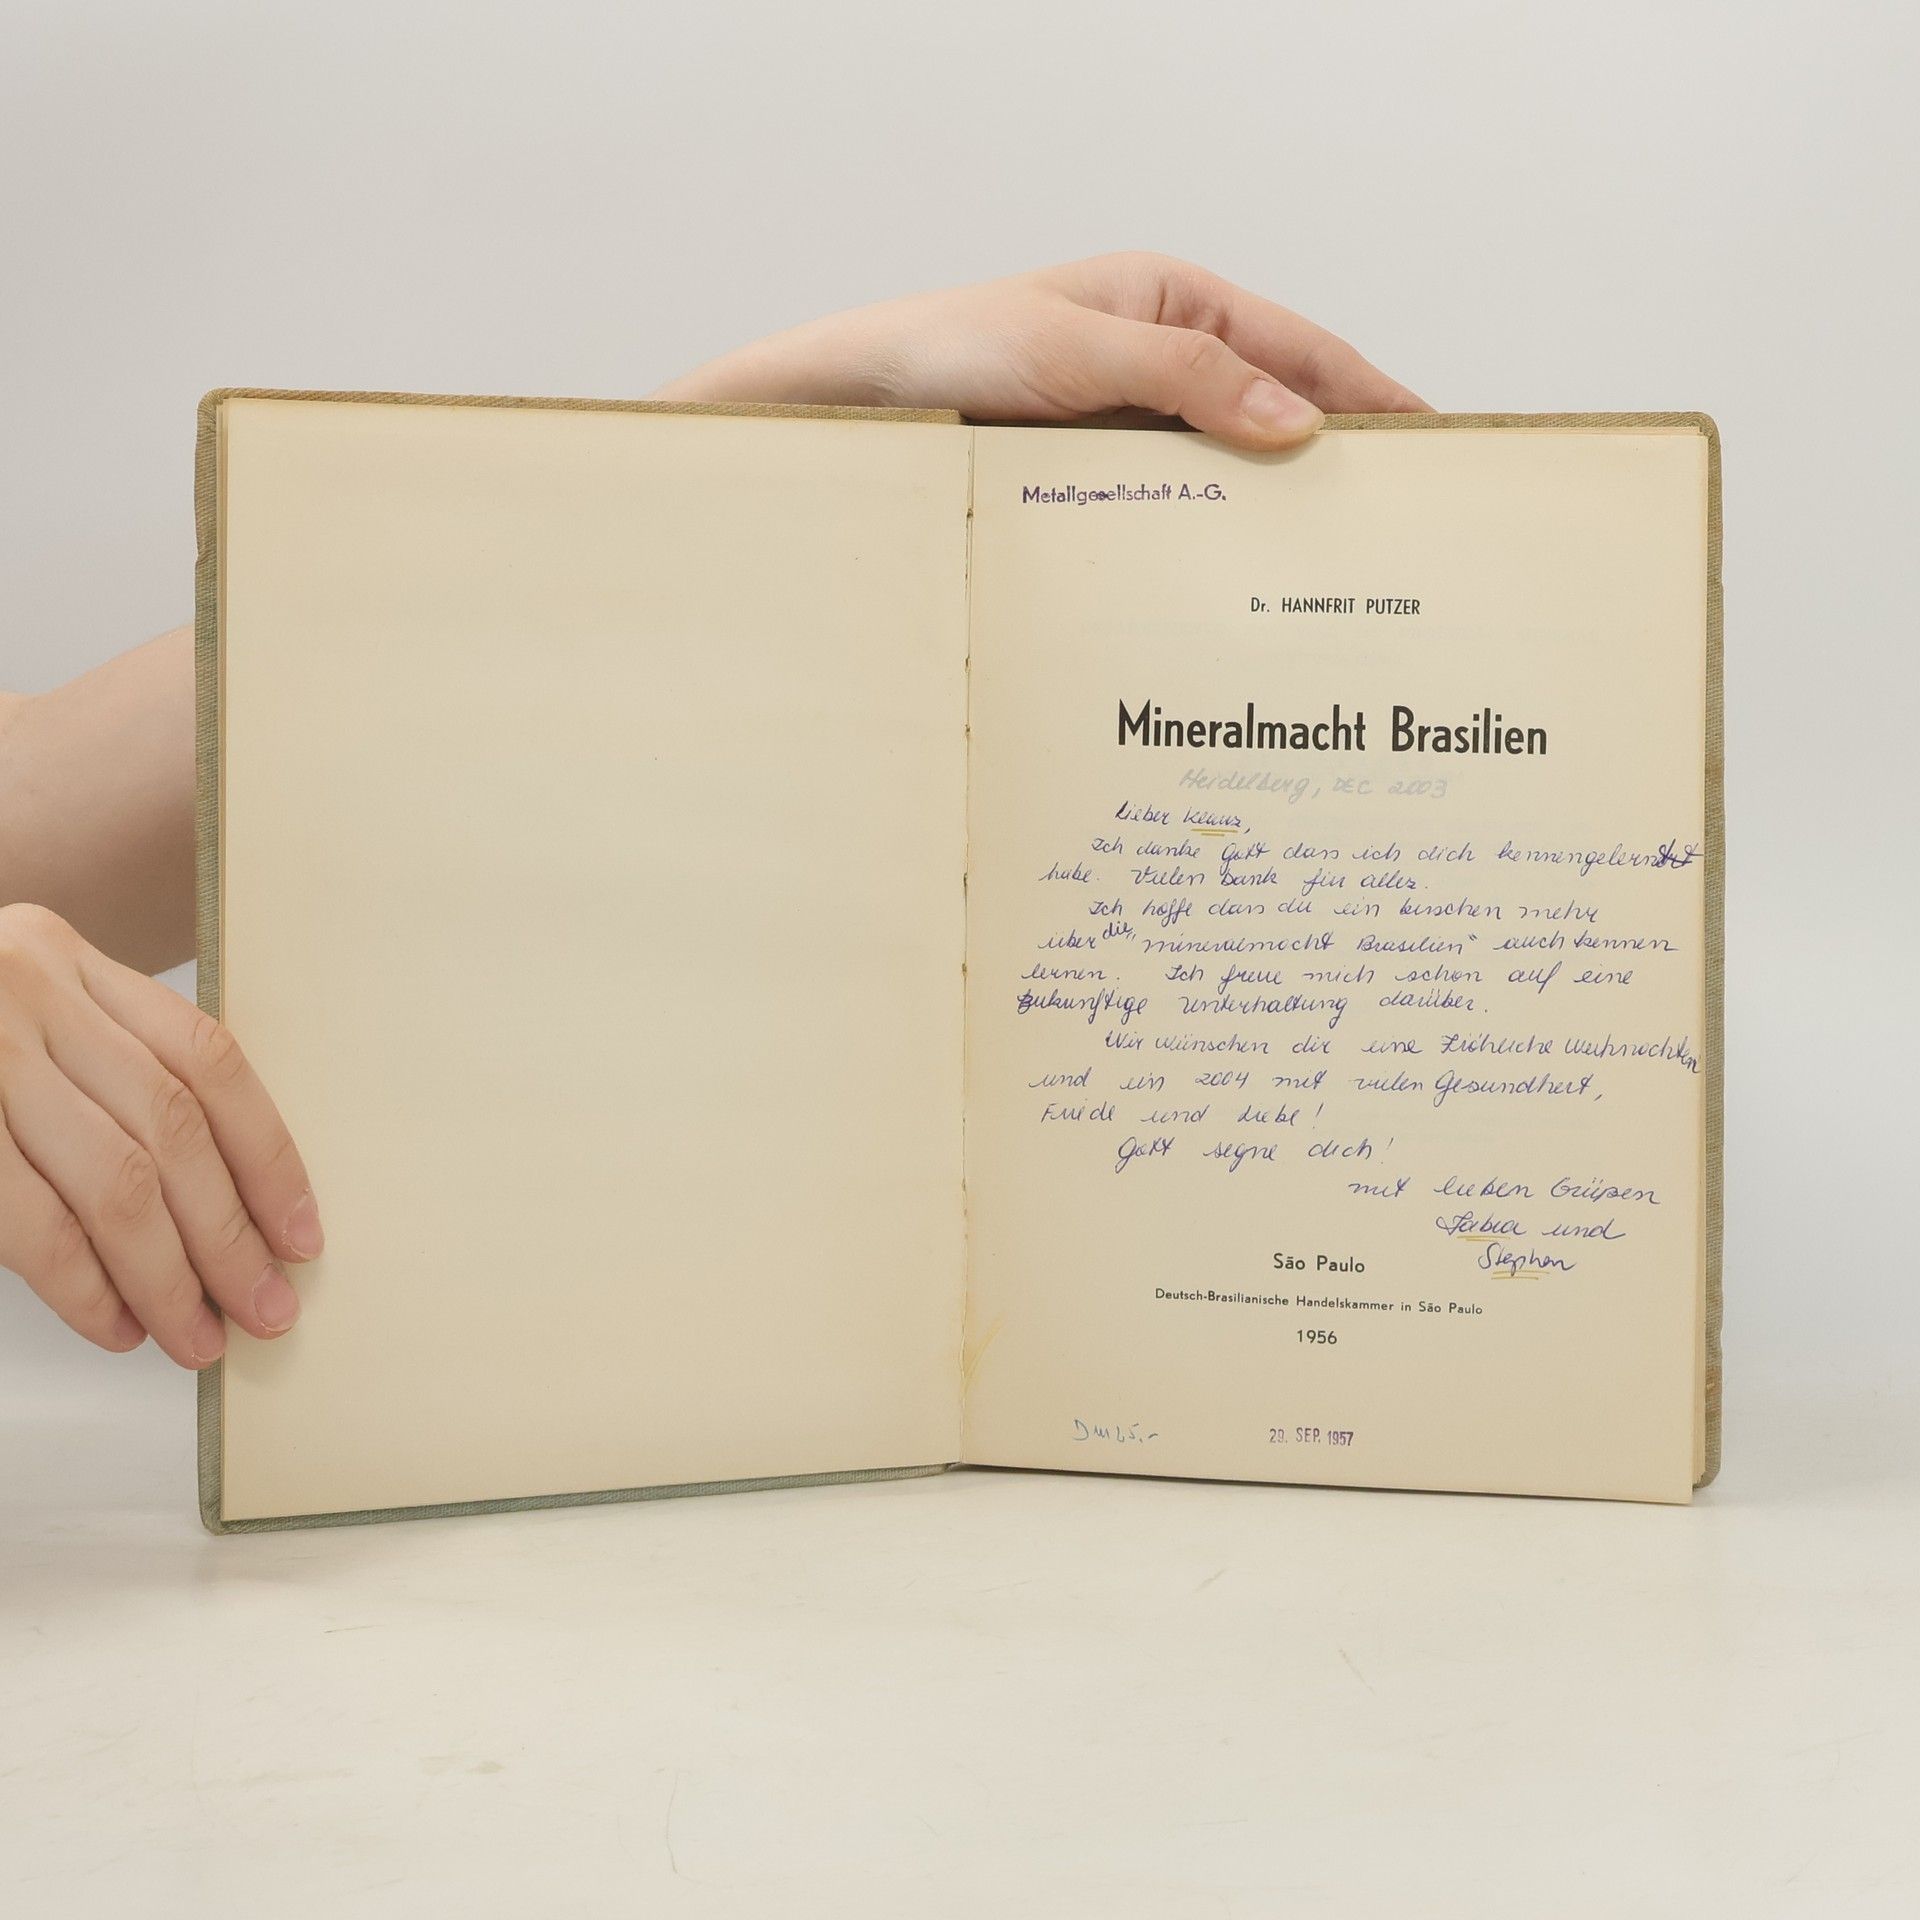 Metallgesellschaft A.-G.
Dr. HANNFRIT PUTZER
Mineralmacht Brasilien
Heidelberg, DEC 2003
Lieber Klaus,
Ich danke Gott dass ich dich kennengelernt
habe. Vielen Dank für alles.
Ich hoffe dass du ein bisschen mehr
über die "mineralmacht Brasilien" auch kennen
lernen. Ich freue mich schon auf eine
zukunftige Unterhaltung darüber.
Wir wünschen dir eine Fröhliche Weihnachten
und ein 2004 mit vielen Gesundheit,
Friede und Liebe!
Gott segne dich!
mit lieben Grüßen
Fabia und
Stephan
São Paulo
Deutsch-Brasilianische Handelskammer in São Paulo
1956
DM 25.-
29. SEP. 1957